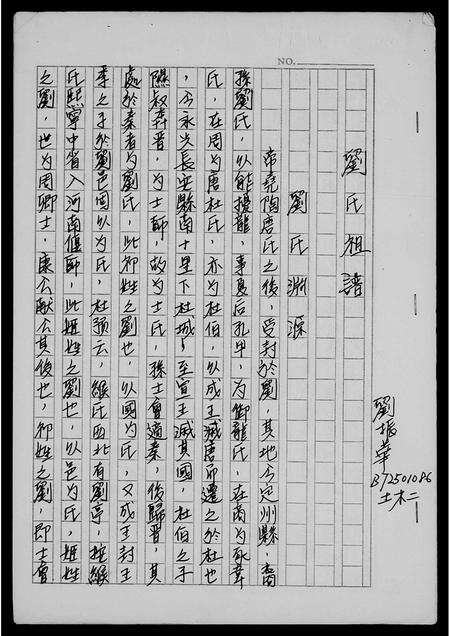 NO.
劉振華
B72501086
土木二
劉氏祖譜
劉氏淵源
帝堯陶唐氏之後，受封於劉，其地今定州縣，裔
孫劉氏，以能擾龍，事夏后孔甲，為御龍氏，在商為豕韋
氏，在周為唐杜氏，亦為杜伯，以成王滅唐即遷之於杜也
，今永久長安縣南十里下杜城，至宣王滅其國，杜伯之子
隰叔奔晉，為士師，故為士氏，孫士會適秦，後歸晉，其
處於秦者為劉氏，此祁姓之劉也，以國為氏，又成王封王
季之子於劉邑因以為氏，杜預云，緱氏西北有劉亭，按緱
氏熙寧中省入河南偃師，此姬姓之劉也，以邑為氏，姬姓
之劉，也為周卿士，康公獻公其後也，祁姓之劉，即士會